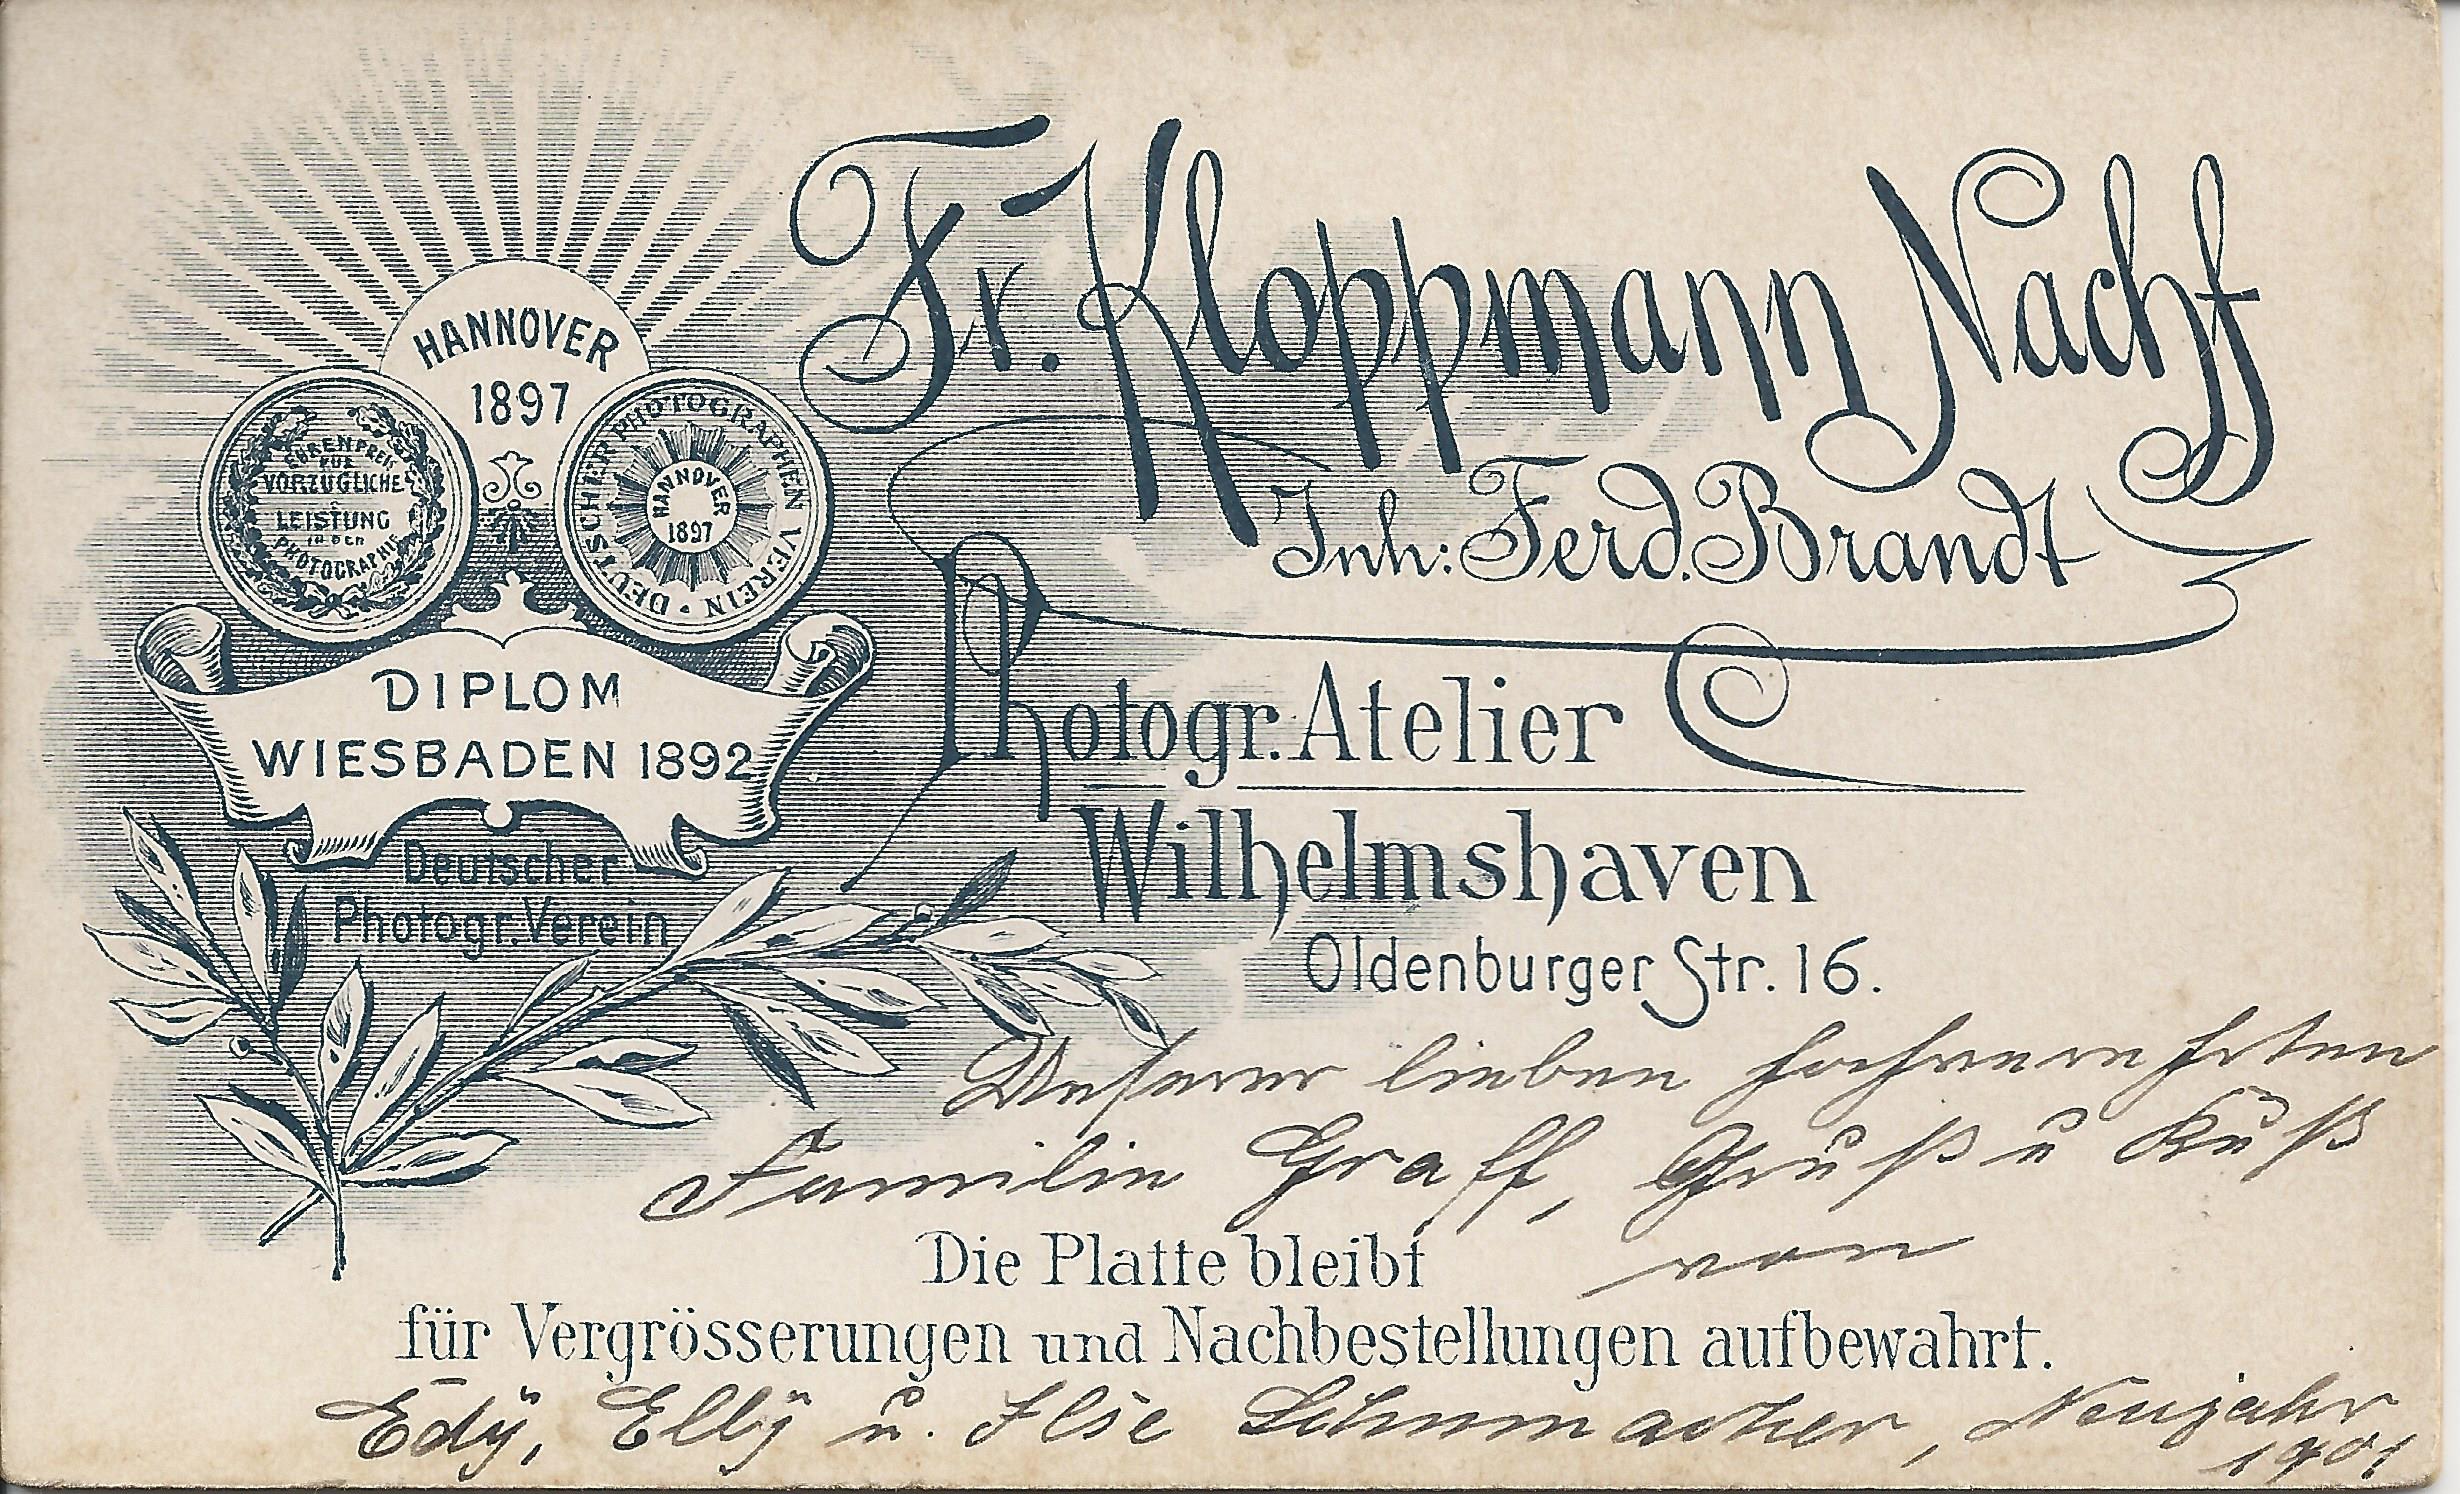 HANNOVER
1897
EHRENPREIS
FÜR
VORZÜGLICHE
LEISTUNG
IN DER
PHOTOGRAPHIE
DEUTSCHER PHOTOGRAPHEN VEREIN
HANNOVER
1897
DIPLOM
WIESBADEN 1892
Deutscher
Photogr. Verein
Fr. Kloppmann Nachf
Inh: Ferd. Brandt
Photogr. Atelier
Wilhelmshaven
Oldenburger Str. 16.
Unserer lieben hochverehrten
Familie Graff, Gruß u Kuß
von
Die Platte bleibt
für Vergrösserungen und Nachbestellungen aufbewahrt.
Edÿ, Ellÿ u. Ilse Schumacher, Neujahr
1901